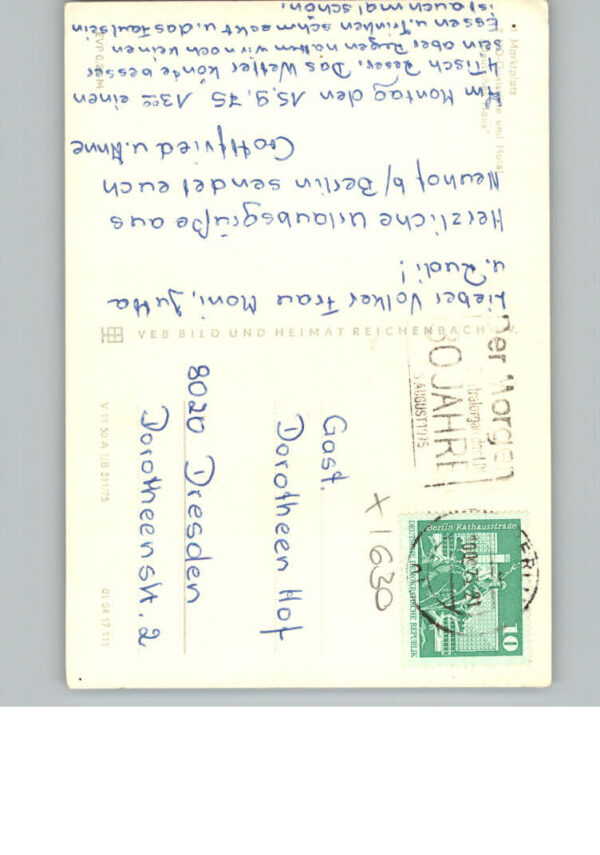 Lieber Volker Frau Moni, Jutta
u. Rudi!
Herzliche Urlaubsgrüße aus
Neuhof b/ Berlin sendet euch
Gottfried u. Anne
Am Montag den 15.9.75 13°° einen
4 Tisch Reser. Das Wetter könte besser
sein aber Regen hatten wir noch keinen
Essen u. Trinken schmeckt u. das Faulsein
ist auch mal schön.
1 Marktplatz
und Hotel
EVP 0,20 M
VEB BILD UND HEIMAT REICHENBACH
V 11 50 A 1/B 511/75
01 04 17 111
Gast.
Dorotheen Hof
8020 Dresden
Dorotheenstr. 2
x 1630
Der Morgen
30 JAHRE
AUGUST 1975
Berlin, Rathausstraße
DEUTSCHE DEMOKRATISCHE REPUBLIK
10